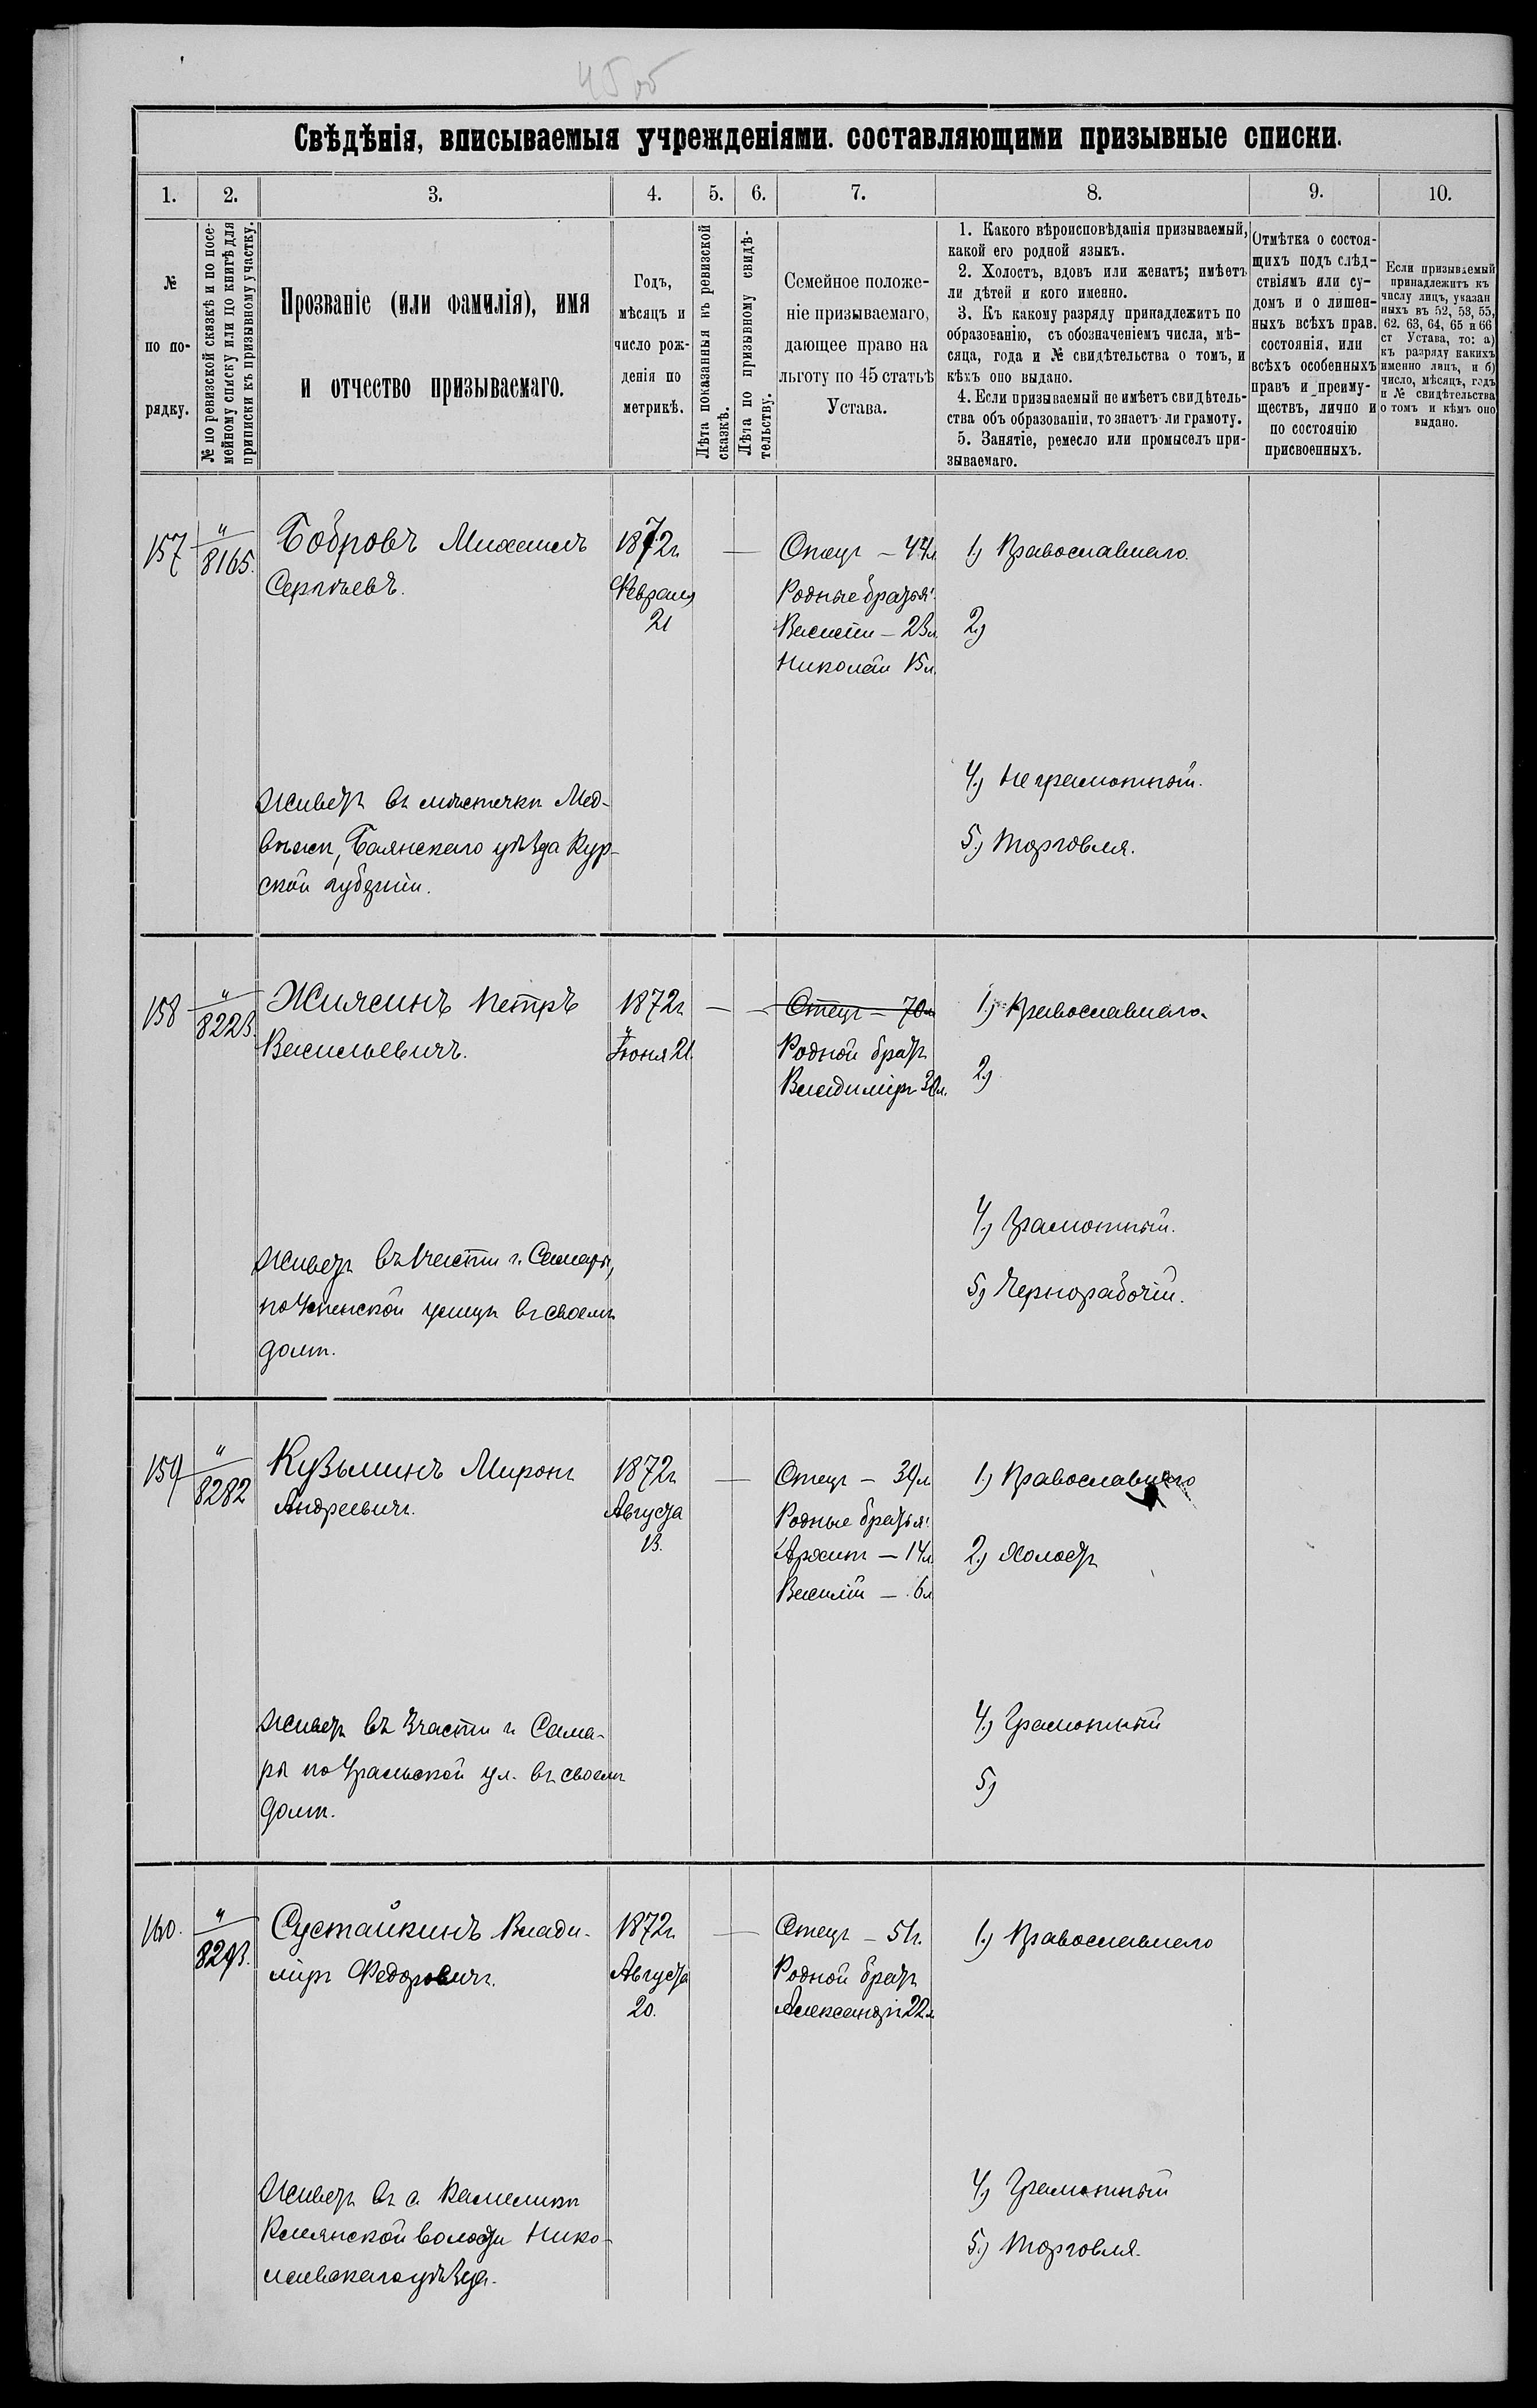 45об
Свѣдѣнія, вписываемыя учрежденіями. составляющими призывные списки.
1. 2. 3. 4. 5. 6. 7. 8. 9. 10.
№
по по-
рядку.
№ по ревизской сказкѣ и по посе-
мейному списку или по книгѣ для
приписки къ призывному участку.
Прозваніе (или фамилія), имя
и отчество призываемаго.
Годъ,
мѣсяцъ и
число рож-
денія по
метрикѣ.
Лѣта показанныя къ ревизской
сказкѣ.
Лѣта по призывному свидѣ-
тельству.
Семейное положе-
ніе призываемаго,
дающее право на
льготу по 45 статьѣ
Устава.
1. Какого вѣроисповѣданія призываемый,
какой его родной языкъ.
2. Холостъ, вдовъ или женатъ; имѣетъ
ли дѣтей и кого именно.
3. Къ какому разряду принадлежитъ по
образованію, съ обозначеніемъ числа, мѣ-
сяца, года и № свидѣтельства о томъ, и
кѣмъ оно выдано.
4. Если призываемый не имѣетъ свидѣтель-
ства объ образованіи, то знаетъ ли грамоту.
5. Занятіе, ремесло или промыселъ при-
зываемаго.
Отмѣтка о состоя-
щихъ подъ слѣд-
ствіямъ или су-
домъ и о лишен-
ныхъ всѣхъ прав.
состоянія, или
всѣхъ особенныхъ
правъ и преиму-
ществъ, лично и
по состоянію
присвоенныхъ.
Если призываемый
принадлежитъ къ
числу лицъ, указан
ныхъ въ 52, 53, 55,
62. 63, 64, 65 и 66
ст Устава, то: а)
къ разряду какихъ
именно лицъ, и б)
число, мѣсяцъ, годъ
и № свидѣтельства
о томъ и кѣмъ оно
выдано.
157
"
8165.
Бобровъ Михаилъ
Сергѣевъ.
1872г
Февраля
21
—
Отецъ – 44л
Родные братья:
Василій – 23л
Николай 15л.
1) Православнаго.
2)
4) Неграмотный.
5) Торговля.
Живетъ въ мѣстечкѣ Мед-
Баянскаго уѣзда Кур-
ской губерніи.
158
"
8223.
Жилясинъ Петръ
Васильевичъ.
1872г
Іюня 21
—
—
Отецъ – 70л
Родной братъ
Владиміръ
1) Православнаго.
2)
4) Грамотный.
5) Чернорабочій.
Живетъ въ части г. Самары,
по Успенской улицѣ въ своемъ
домѣ.
159
"
8282
Кузьминъ Миронъ
Андреевичъ.
1872г
Августа
13.
—
Отецъ – 39л
Родные братья:
Архипъ – 14л
Василій – 6л
1) Православнаго
2) Холостъ
4) Грамотный
5)
Живетъ въ 3 части г. Сама-
ры по Уральской ул. въ своемъ
домѣ.
160.
"
8293.
Сустайкинъ Влади-
міръ Федоровичъ.
1872г
Августа
20.
—
Отецъ – 51г.
Родной братъ
Александръ 22л
1) Православнаго
4) Грамотный
5) Торговля.
Живетъ въ с. Камеликѣ
волости Нико-
лаевскаго уѣзда.